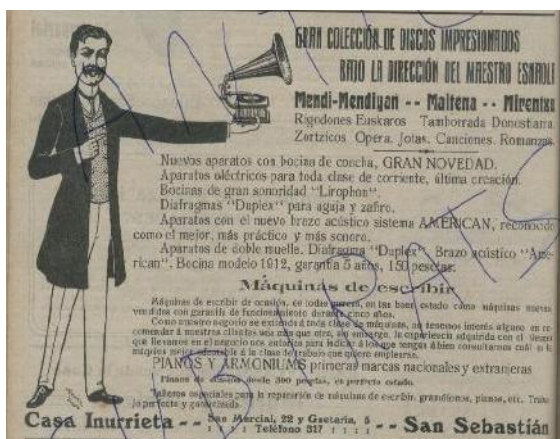 GRAN COLECCIÓN DE DISCOS IMPRESIONADOS
BAJO LA DIRECCIÓN DEL MAESTRO ESNAOLA
Mendi-Mendiyan -- Maitena -- Mirentxu
Rigodones Euskaros Tamborrada Donostiarra
Zortzicos Opera. Jotas. Canciones. Romanzas
Nuevos aparatos con bocina de concha, GRAN NOVEDAD.
Aparatos eléctricos para toda clase de corriente, última creación.
Bocinas de gran sonoridad "Lirophon".
Diafragmas "Duplex" para aguja y zafiro.
Aparatos con el nuevo brazo acústico sistema AMERICAN, reconocido
como el mejor, más práctico y más sonoro.
Aparatos de doble muelle. Diafragma "Duplex". Brazo acústico "Ame-
rican". Bocina modelo 1912, garantía 5 años, 150 pesetas.
Máquinas de escribir
Máquinas de escribir de ocasión, en todas marcas, en tan buen estado como máquinas nuevas
vendidas con garantía de funcionamiento durante cinco años.
Como nuestro negocio se extiende á toda clase de máquinas, no tenemos interés alguno en re-
comendar á nuestros clientes una más que otra, sin embargo, la experiencia adquirida con el tiempo
que llevamos en el negocio nos autoriza para indicar á los que tengan á bien consultarnos cuál es la
máquina mejor adaptable á la clase de trabajo que quiere emplearse.
PIANOS Y ARMONIUMS primeras marcas nacionales y extranjeras
Pianos de ocasión desde 300 pesetas, en perfecto estado.
Talleres especiales para la reparación de máquinas de escribir, gramófonos, pianos, etc. Traba-
jo perfecto y garantizado.
Casa Inurrieta -- San Marcial, 22 y Guetaria, 5 -- San Sebastián
Teléfono 517